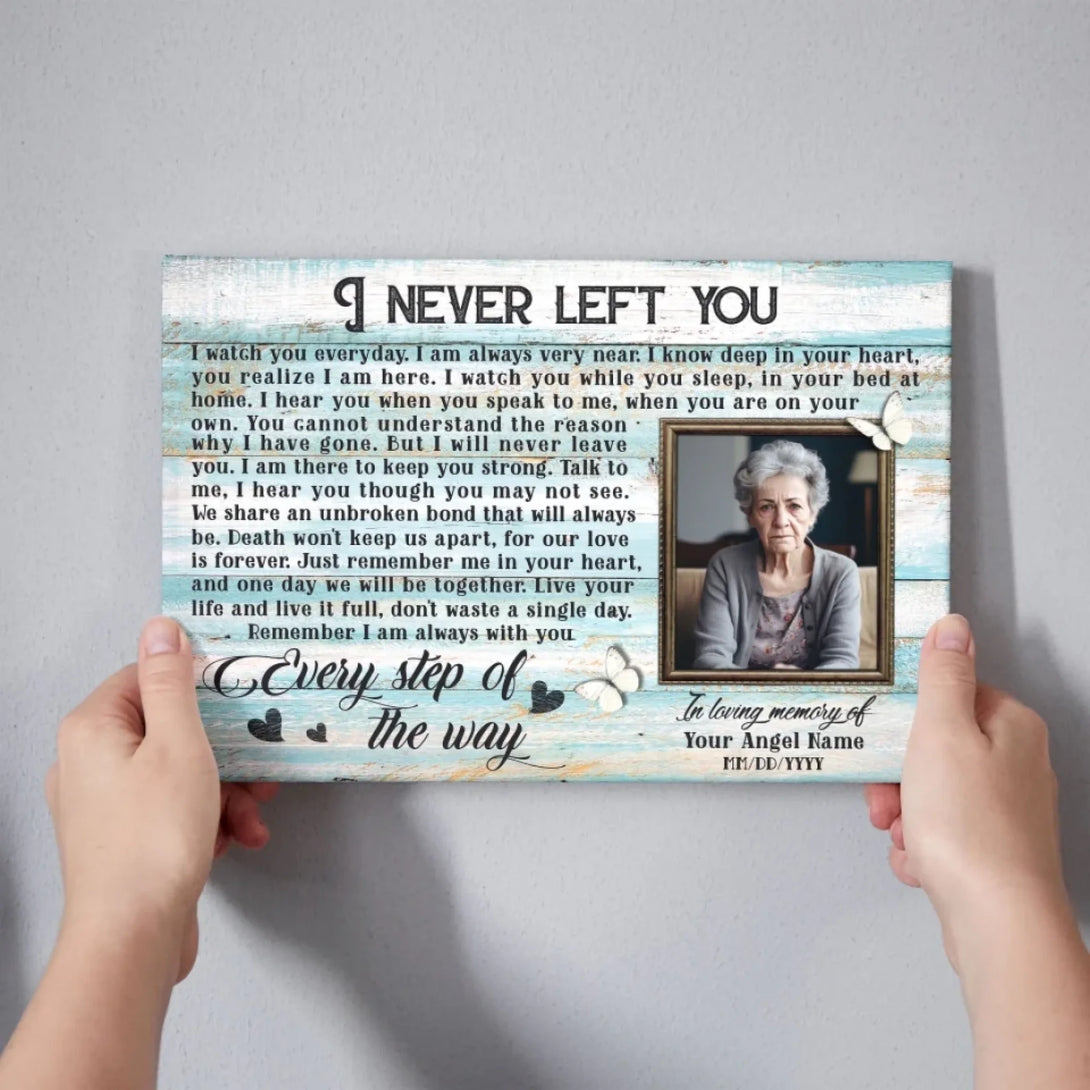 I NEVER LEFT YOU
I watch you everyday. I am always very near. I know deep in your heart,
you realize I am here. I watch you while you sleep, in your bed at
home. I hear you when you speak to me, when you are on your
own. You cannot understand the reason
why I have gone. But I will never leave
you. I am there to keep you strong. Talk to
me, I hear you though you may not see.
We share an unbroken bond that will always
be. Death won't keep us apart, for our love
is forever. Just remember me in your heart,
and one day we will be together. Live your
life and live it full, don't waste a single day.
Remember I am always with you
Every step of
the way
In loving memory of
Your Angel Name
MM/DD/YYYY